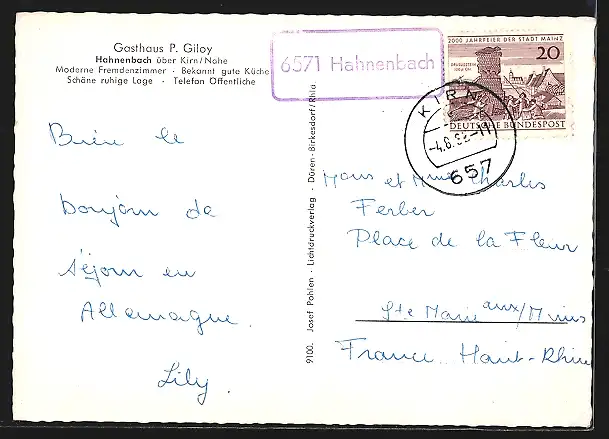 Gasthaus P. Giloy
Hahnenbach über Kirn/Nahe
Moderne Fremdenzimmer · Bekannt gute Küche
Schöne ruhige Lage · Telefon Öffentliche
6571 Hahnenbach
2000 JAHRFEIER DER STADT MAINZ
20
DEUTSCHE BUNDESPOST
KIRN
657
le
bonjour de
séjour en
Allemagne.
Lily.
9100. Josef Pohlen · Lichtdruckverlag · Düren-Birkesdorf/Rhld
Mons et Mme Charles
Ferber
Place de la Fleur
Ste Marie aux/Mines
France. Haut-Rhin